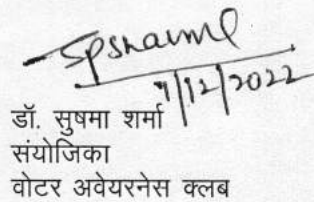 Spsharma
7/12/2022
डॉ. सुषमा शर्मा
संयोजिका
वोटर अवेयरनेस क्लब